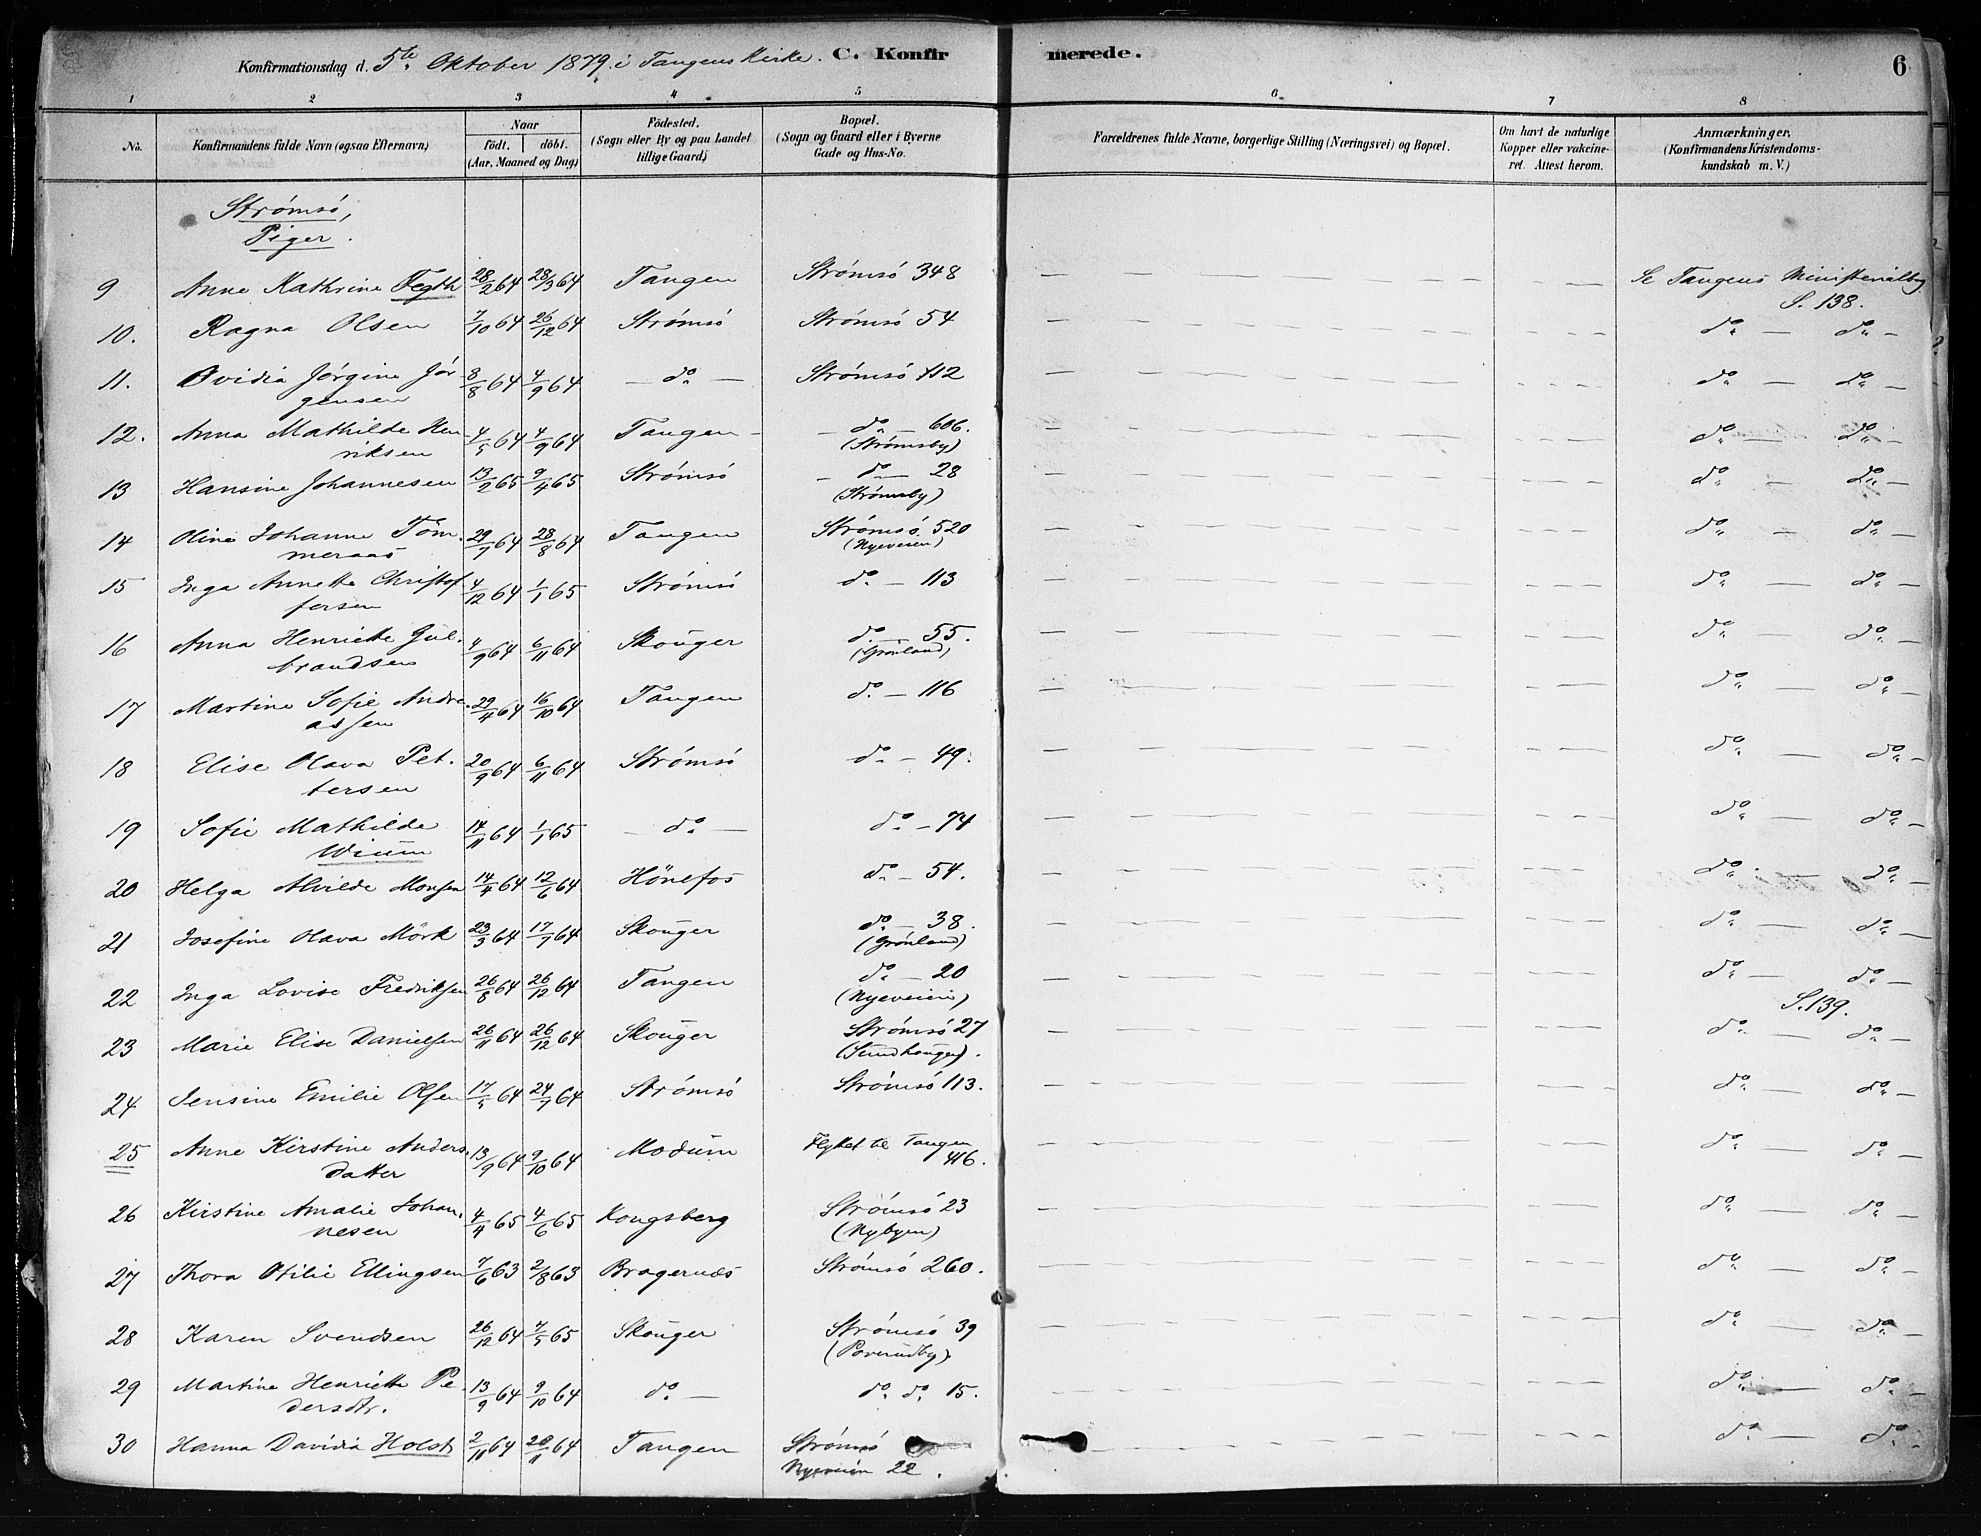 Konfirmationsdag d. 5te Oktober 1879 i Tangens Kirke. C. Konfirmerede. 6
1 2 3 4 5 6 7 8
No. Konfirmandens fulde Navn (ogsaa Efternavn) Naar födt. döbt. (Aar, Maaned og Dag) Födested. (Sogn eller By og paa Landet tillige Gaard) Bopæl. (Sogn og Gaard eller i Byerne Gade og Hus-No. Forældrenes fulde Navne, borgerlige Stilling (Næringsvei) og Bopæl. Om havt de naturlige Kopper eller vakcineret. Attest herom. Anmærkninger. (Konfirmandens Kristendomskundskab m. V.)
Strömsö,
Piger.
9 Anne Kathrine Fegth 28/2 64 28/3 64 Tangen Strömsö 348 — — — — Se Tangens Ministerialbog S. 138.
10. Ragna Olsen 7/10 64 26/12 64 Strömsö Strömsö 54 — — — — do — do —
11. Ovidia Jörgine Jörgensen 8/8 64 4/9 64 — do — Strömsö 112 — — — — do — do —
12. Anna Mathilde Henriksen 4/5 64 4/9 64 Tangen — do — 606. (Strömsby) — — — — do — do —
13 Hansine Johannesen 13/2 65 9/4 65 Strömsö — do — 28 (Strömsby) — — — — do — do —
14 Oline Johanne Tömmeraas 29/7 64 28/8 64 Tangen Strömsö 520 (Nyeveien) — — — — do — do —
15 Inga Annette Christoffersen 4/12 64 1/1 65 Strömsö do — 113 — — — — do — do —
16 Anna Henriette Gulbrandsen 4/9 64 6/11 64 Skouger do — 55. (Grönland) — — — — do — do —
17 Martine Sofie Andreassen 29/4 64 16/10 64 Tangen do — 116 — — — — do — do —
18 Elise Olava Pettersen 20/9 64 6/11 64 Strömsö do — 49. — — — — do — do —
19 Sofie Mathilde Wium 14/11 64 1/1 65 — do — do — 74 — — — — do — do —
20 Helga Alvilde Monsen 14/4 64 12/6 64 Hönefos do — 54. — — — — do — do —
21 Josefine Olava Mörk 23/3 64 17/7 64 Skouger do — 38. (Grönland) — — — — do — do —
22 Inga Lovise Fredriksen 26/8 64 26/12 64 Tangen do — 20 (Nyeveien) — — — — do — do —
S. 139.
23 Marie Elise Danielsen 26/11 64 26/12 64 Skouger Strömsö 27 (Sundhaugen). — — — — do — do —
24 Jensine Emilie Olsen 17/5 64 24/7 64 Strömsö Strömsö 113. — — — — do — do —
25 Anne Kirstine Andersdatter 13/9 64 9/10 64 Modum Flyttet til Tangen 416. — — — — do — do —
26 Kirstine Amalie Johannesen 4/4 65 4/6 65 Kongsberg Strömsö 23 (Nybyen) — — — — do — do —
27 Thora Otilie Ellingsen 7/6 63 2/8 63 Bragernæs Strömsö 260. — — — — do — do —
28 Karen Svendsen 26/12 64 7/5 65 Skouger Strömsö 39 (Poverudby) — — — — do — do —
29 Martine Henriette Pedersdtr. 13/9 64 9/10 64 do — do do 15. — — — — do — do —
30 Hanna Davidia Holst 2/11 64 20/11 64 Tangen Strömsö Nyeveien 22. — — — — do — do —